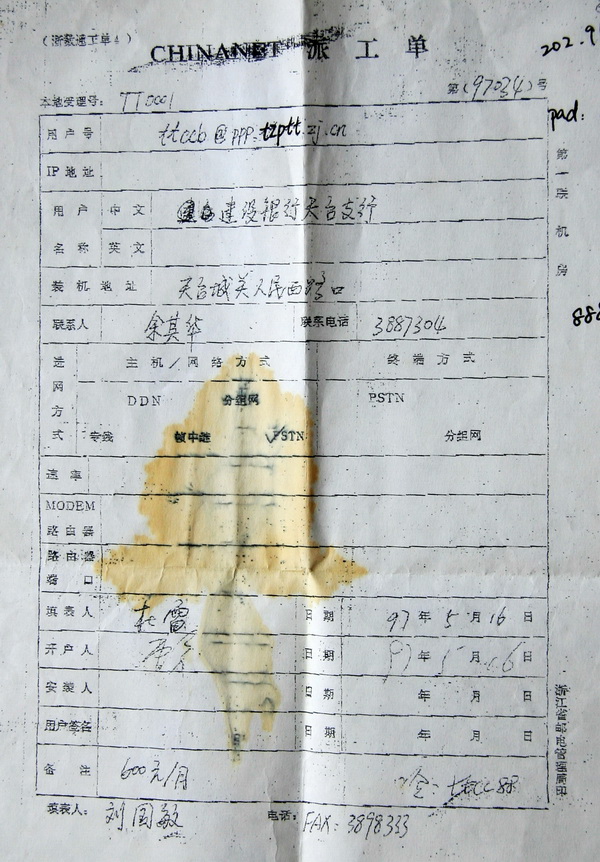 (浙数速工单4)
CHINANET 派工单
202.9
本地受理号: TT0001
第(97034)号
用户号 ttccb@ppp.tzptt.zj.cn
pad:
IP地址
用户名称 中文 建设银行天台支行
英文
第一联 机房
装机地址 天台城关人民西路口
888
联系人 余其华 联系电话 3887304
进网方式 主机/网络方式 终端方式
DDN 分组网 PSTN
专线 帧中继 ✓PSTN 分组网
速率
MODEM
路由器
路由器
端口
填表人 杜雷 日期 97年5月16日
开户人 日期 97年5月16日
安装人 日期 年 月 日
用户签名 日期 年 月 日
浙江省邮电管理局印
备注 600元/月
填表人: 刘国敏 电话: FAX: 3898333